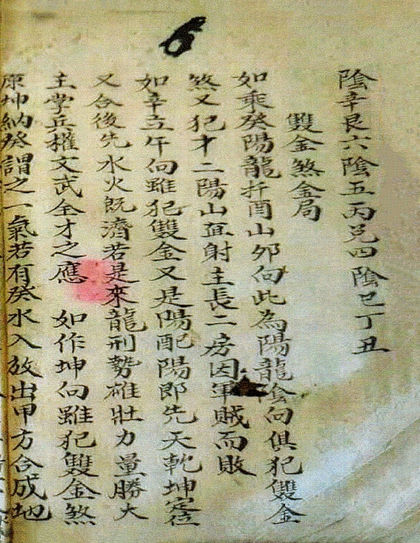 6
陰辛艮六陰五丙兑四陰巳丁丑
雙金煞金局
如乘癸陽龍扦酉山夘向此為陽龍陰向俱犯雙金
煞又犯才二陽山直射主長二房因軍賊而敗
如辛立午向雖犯雙金又是陽配陽即先天乾坤定位
又合後先水火既濟若是來龍刑勢雄壯力量勝大
主掌兵權文武全才之應 如作坤向雖犯雙金煞
原坤納癸謂之一氣若有癸水入放出甲方合成地